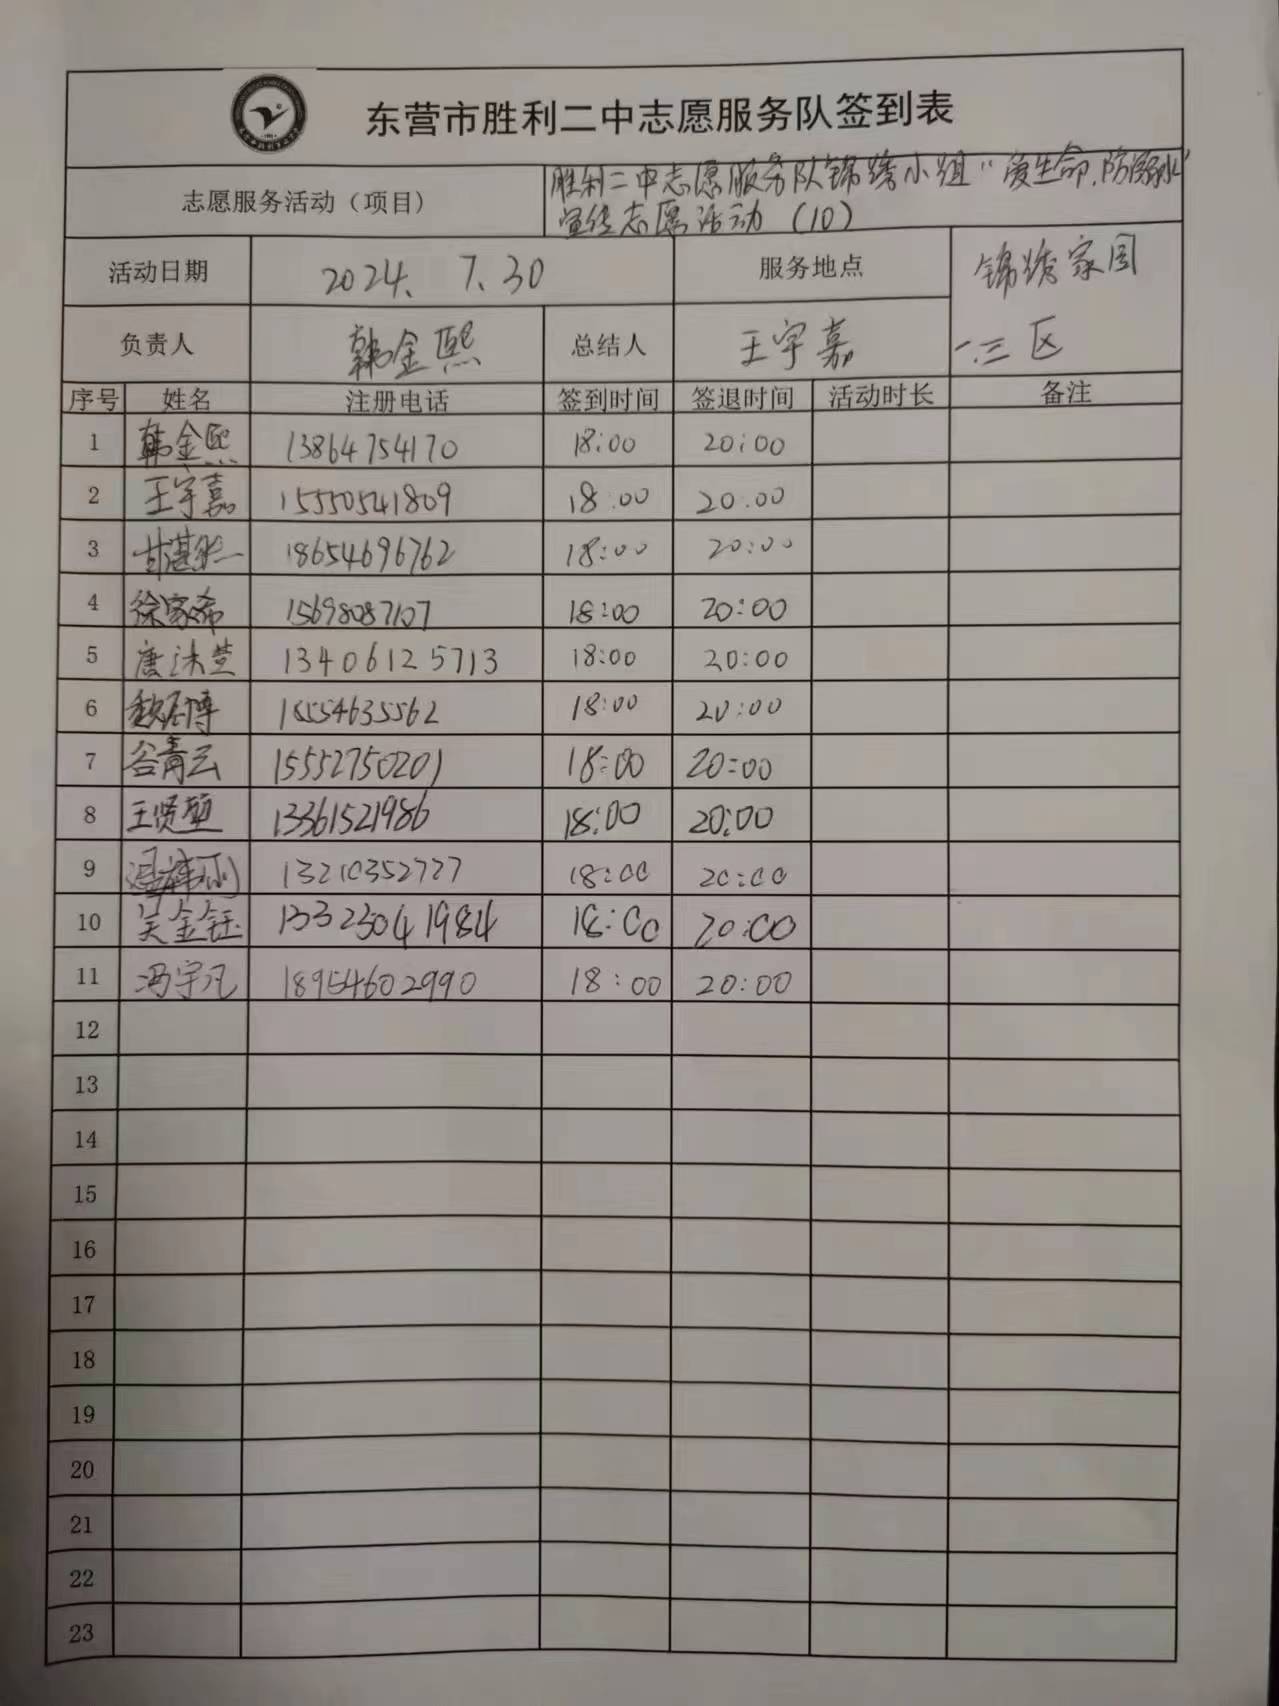 东营市胜利二中志愿服务队签到表
志愿服务活动（项目） 胜利二中志愿服务队锦绣小组“爱生命，防溺水”
宣传志愿活动（10）
活动日期 2024.7.30 服务地点 锦绣家园
一.三区
负责人 韩金熙 总结人 王宇嘉
序号 姓名 注册电话 签到时间 签退时间 活动时长 备注
1 韩金熙 13864754170 18:00 20:00
2 王宇嘉 15550541809 18:00 20:00
3 18654696762 18:00 20:00
4 徐家希 15698087107 18:00 20:00
5 唐沐萱 13406125713 18:00 20:00
6 15554635562 18:00 20:00
7 谷青云 15552750201 18:00 20:00
8 王贤堃 13361521986 18:00 20:00
9 13210352727 18:00 20:00
10 吴金钰 13323041984 18:00 20:00
11 冯宇凡 18954602990 18:00 20:00
12
13
14
15
16
17
18
19
20
21
22
23